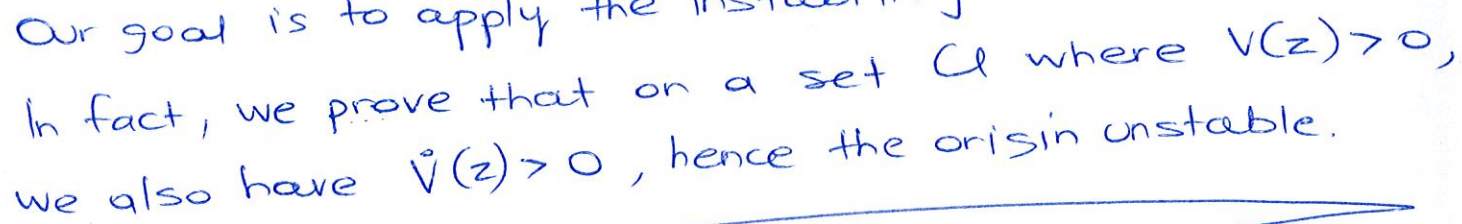 Our goal is to apply the
In fact, we prove that on a set U where V(z)>0,
we also have V̇(z)>0, hence the origin unstable.